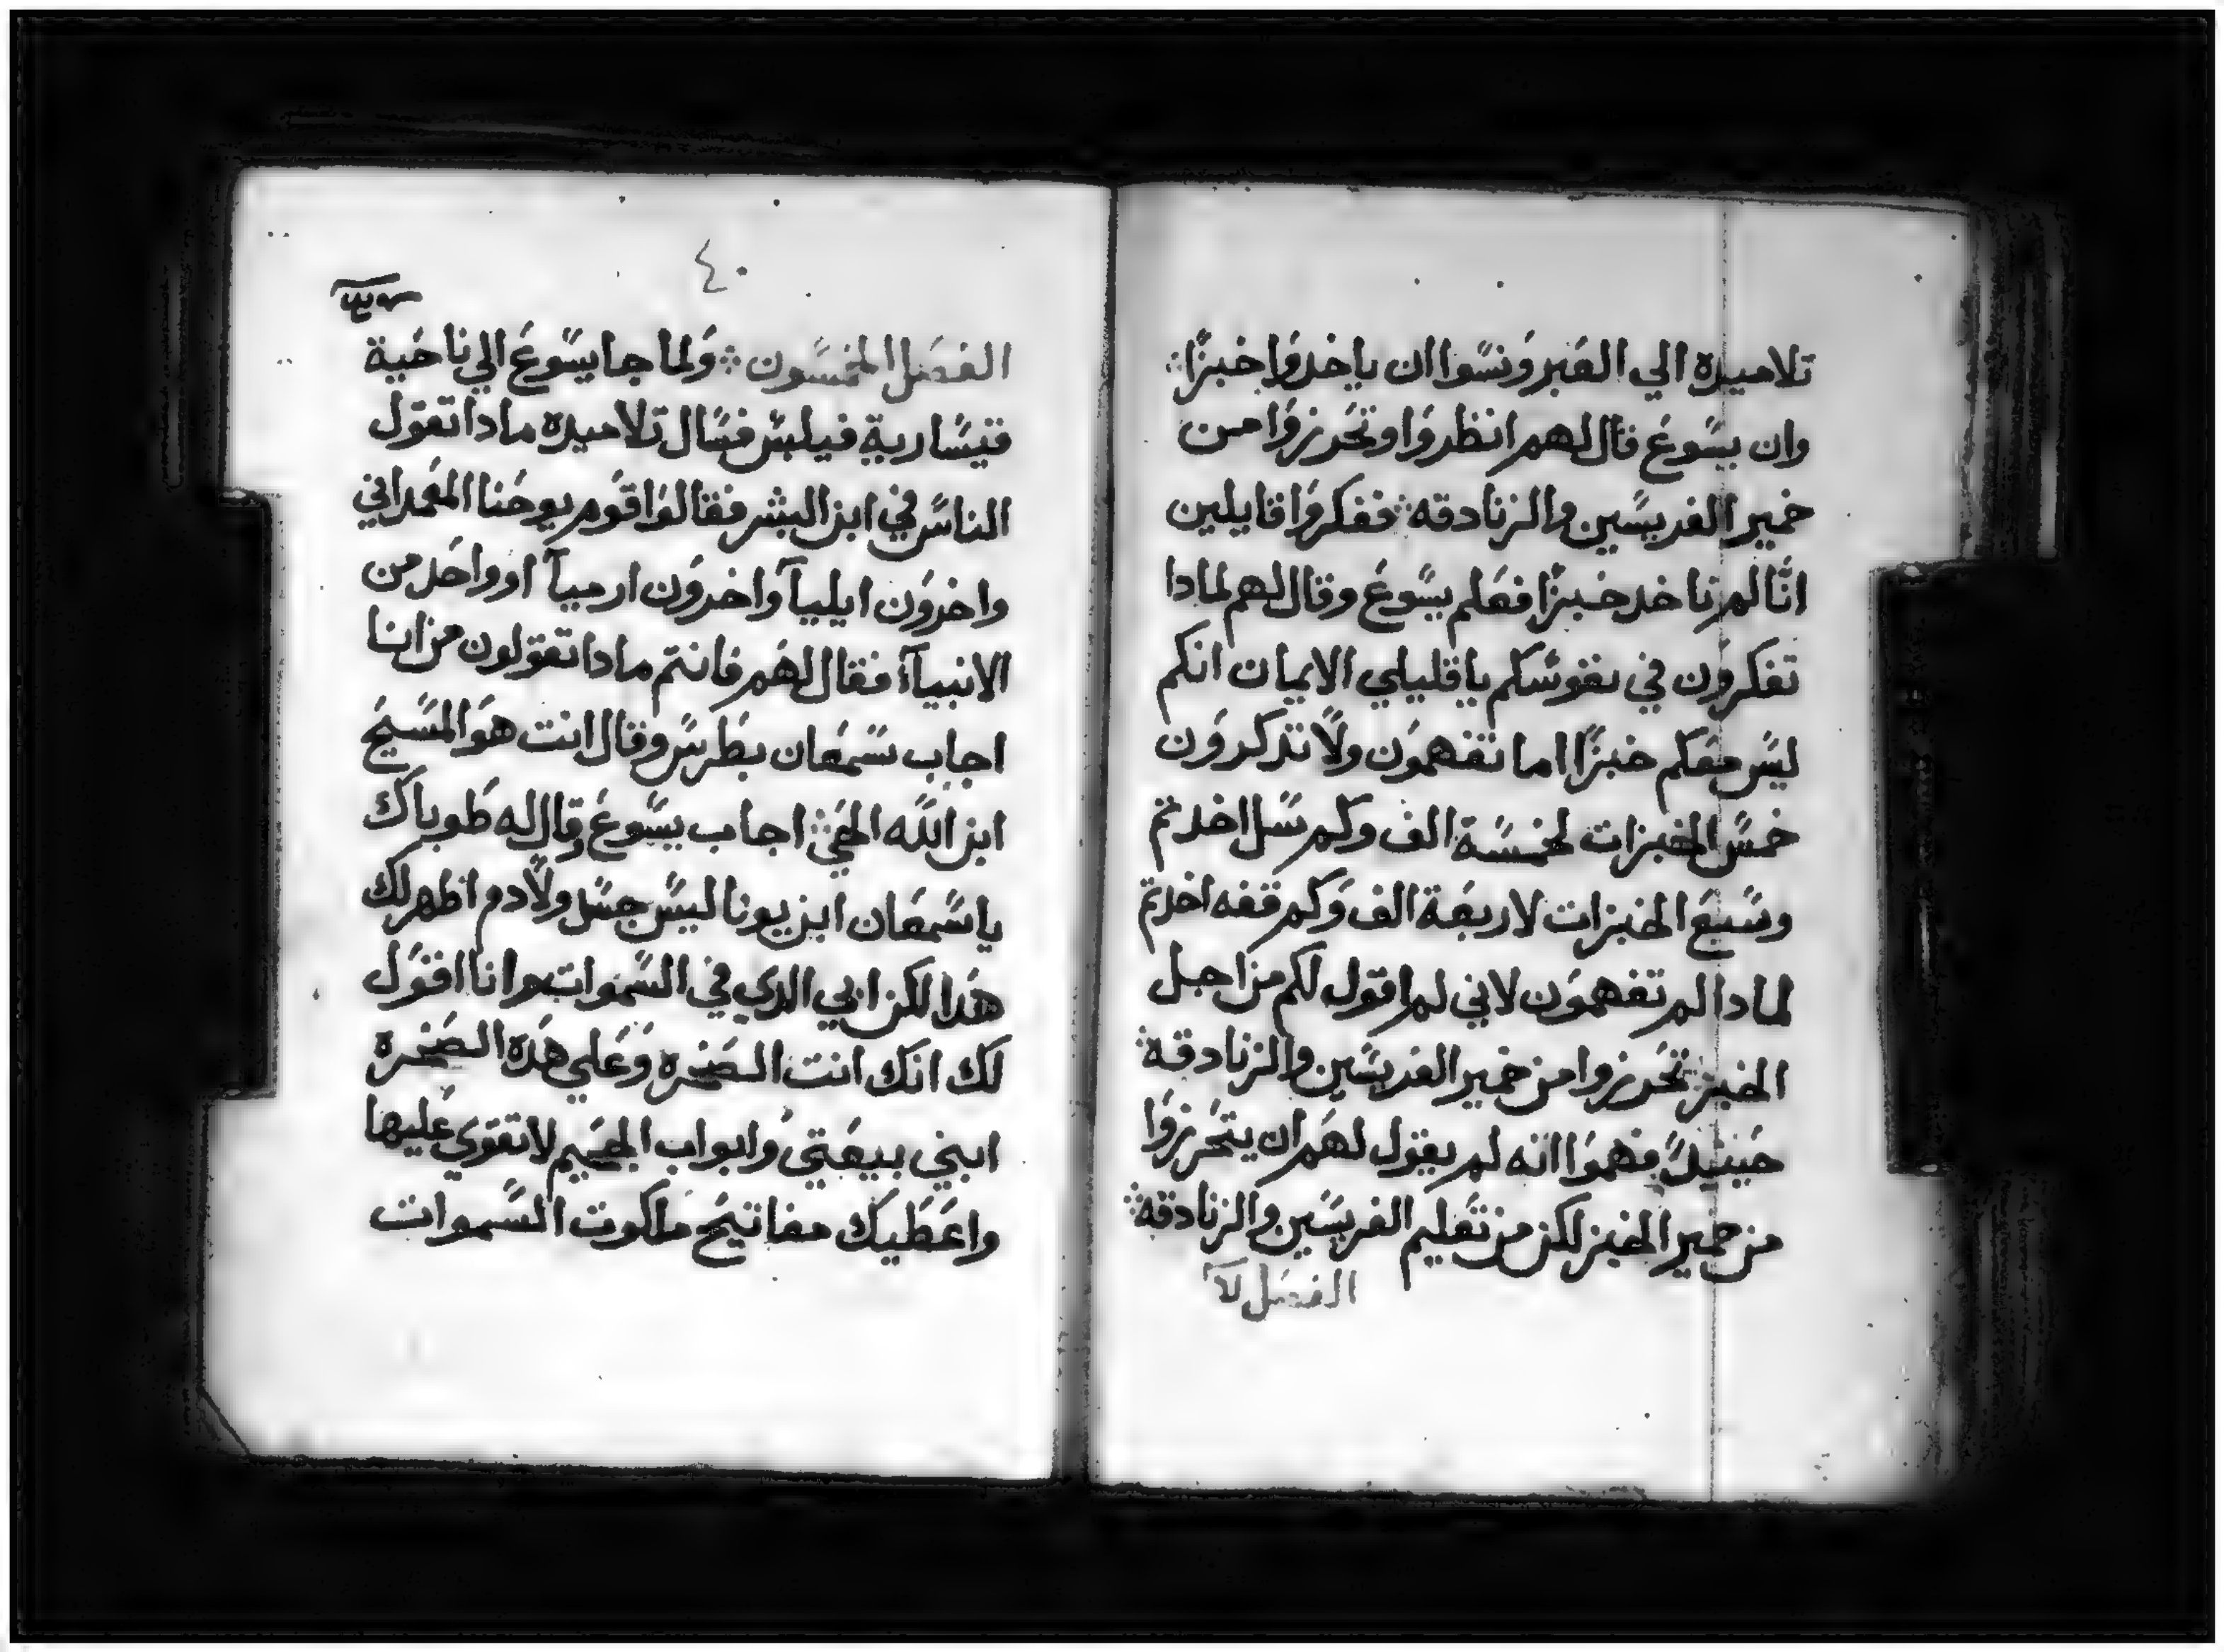 تلاميده الي العبر ونسوا ان ياخدوا خبزًا
وان يسوع قال لهم انظروا وتحرزوا من
خمير الفريسين والزنادقه ففكروا قايلين
انّا لم ناخد خبزًا فعلم يسوع وقال لهم لمادا
تفكرون في نفوسكم ياقليلي الايمان انكم
ليس معكم خبزًا اما تفهمون ولا تذكرون
خمس الخبزات لخمسة الف وكم سل اخدتم
وسبع الخبزات لاربعة الف وكم قفه اخدتم
لمادا لم تفهمون لاني لم اقول لكم من اجل
الخبز تحرزوا من خمير الفريسين والزنادقه
حينيدً فهموا انه لم يقول لهم ان يتحرزوا
من خمير الخبز لكن من تعليم الفريسين والزنادقه
الفصل
٤٠
الفصل الخمسون ولما جا يسوع الي ناحية
قيسارية فيلبس فسال تلاميده مادا تقول
الناس في ابن البشر فقالوا قوم يوحنا المعمداني
واخرون ايليآ واخرون ارميآ او واحد من
الانبيآء فقال لهم فانتم مادا تقولون من انا
اجاب سمعان بطرس وقال انت هو المسيح
ابن الله الحي اجاب يسوع وقال له طوباك
ياسمعان ابن يونا ليس جسد ولا دم اظهر لك
هدا لكن ابي الدي في السموات وانا اقول
لك انك انت الصخره وعلي هده الصخره
ابني بيعتي وابواب الجحيم لا تقوي عليها
واعطيك مفاتيح ملكوت السموات